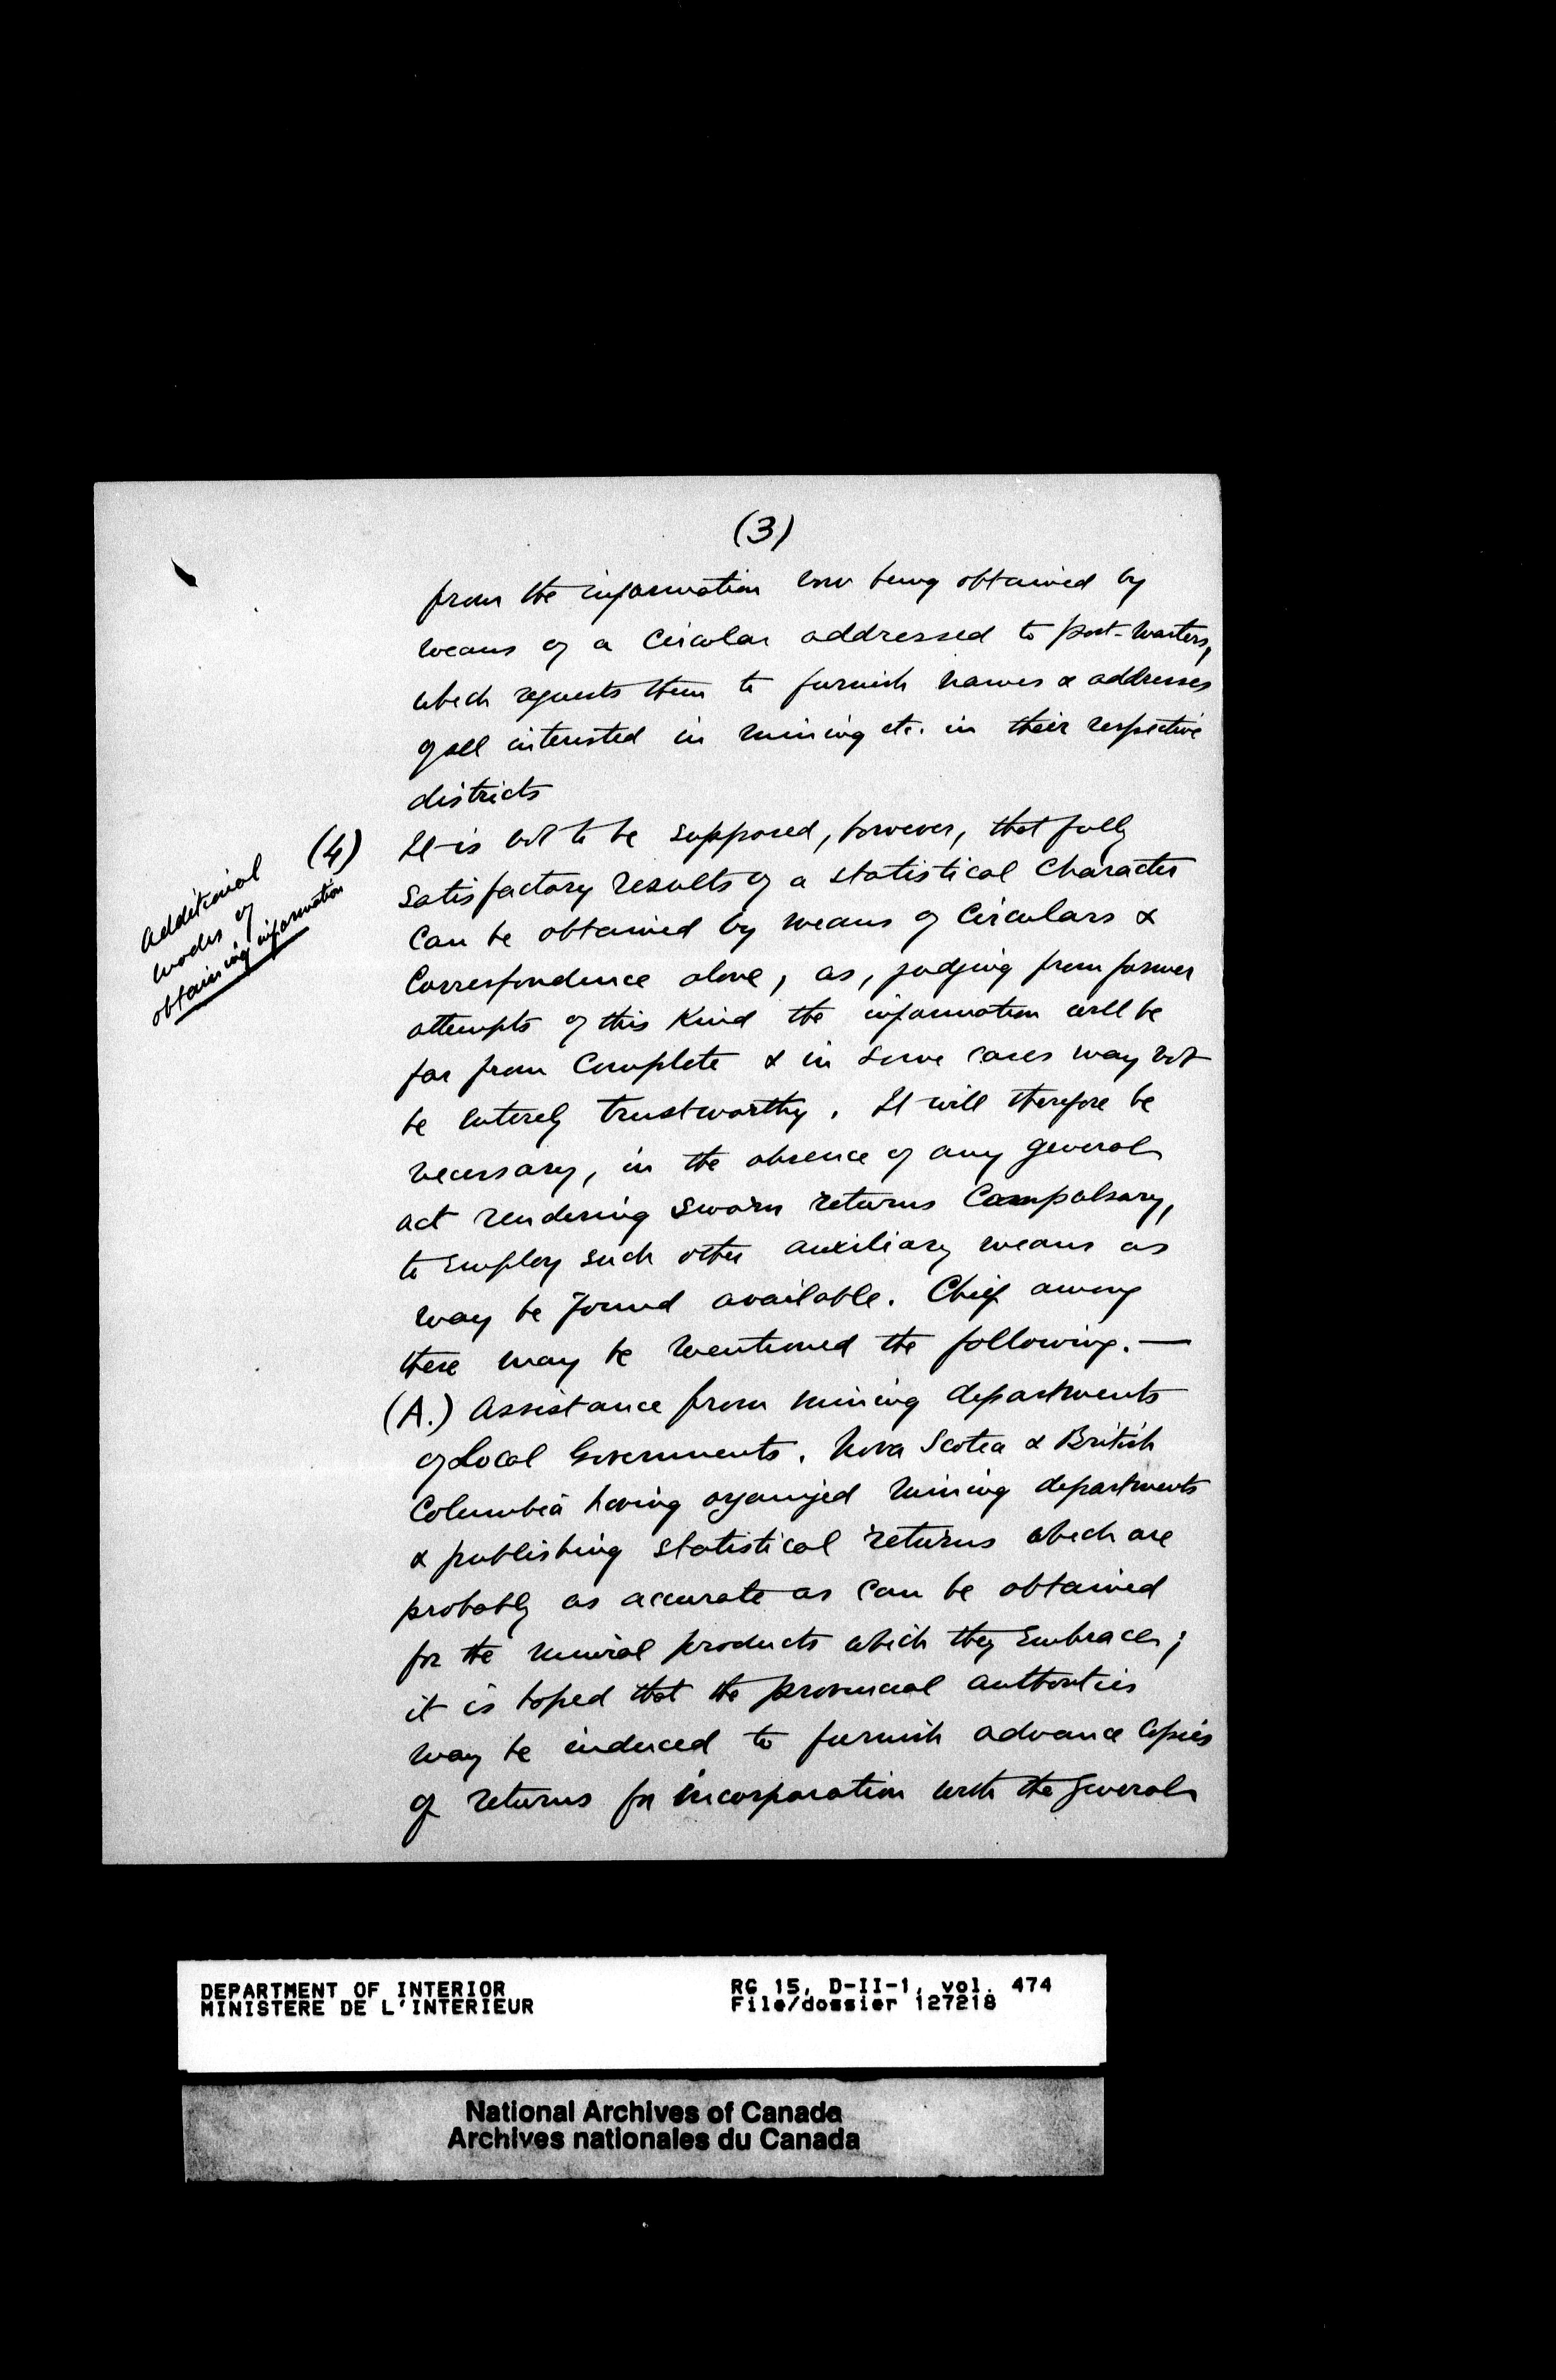 (3)
from the information now being obtained by
means of a Circular addressed to post-masters,
which requests them to furnish names & addresses
of all interested in mining etc. in their respective
districts
(4) It is not to be supposed, however, that fully
Additional
modes of
obtaining information
satisfactory results of a statistical Character
can be obtained by means of Circulars &
Correspondence alone, as, judging from former
attempts of this Kind the information will be
far from Complete & in some cases may not
be entirely trustworthy. It will therefore be
necessary, in the absence of any general
act rendering sworn returns Compulsory,
to employ such other auxiliary means as
may be found available. Chief among
these may be mentioned the following. —
(A.) Assistance from mining departments
of Local Governments. Nova Scotia & British
Columbia having organized mining departments
& publishing statistical returns which are
probably as accurate as can be obtained
for the mineral products which they embrace;
it is hoped that the provincial authorities
may be induced to furnish advance Copies
of returns for incorporation with the general
DEPARTMENT OF INTERIOR
MINISTERE DE L'INTERIEUR
RG 15, D-II-1, vol. 474
File/dossier 127218
National Archives of Canada
Archives nationales du Canada